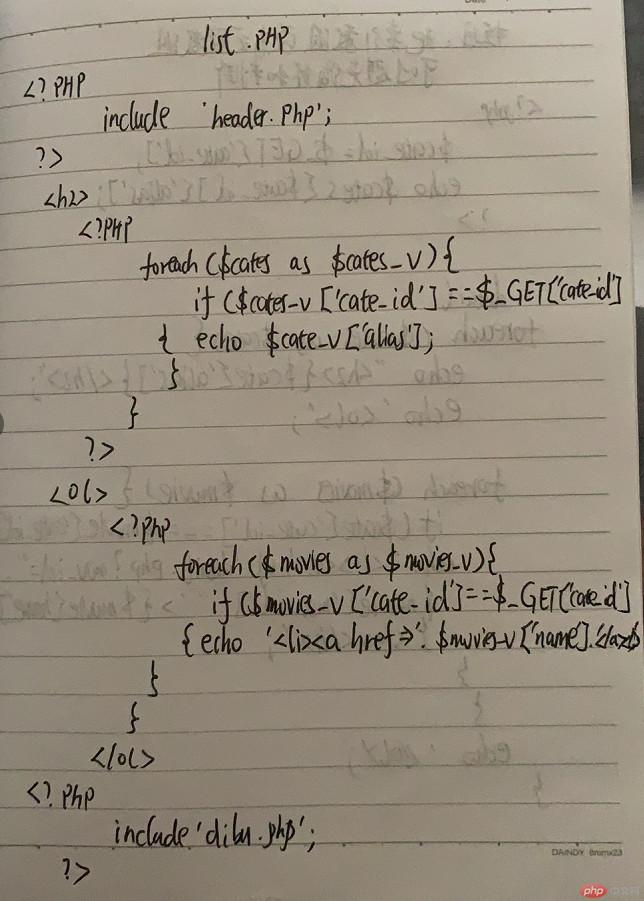 list.PHP
<?PHP
include 'header.php';
?>
<h2>
<?PHP
foreach ($cates as $cates_v){
if ($cates_v ['cate_id'] ==$_GET['cate_id']
{ echo $cate_v['alias'];
}
}
?>
<ol>
<?php
foreach($movies as $movies_v){
if ($movies_v['cate_id']==$_GET['cate_id']
{echo '<li><a href=>'. $movies_v['name'].
}
}
</ol>
<?php
include 'dibu.php';
?>
DAINDY 8mmx23
php 中文网